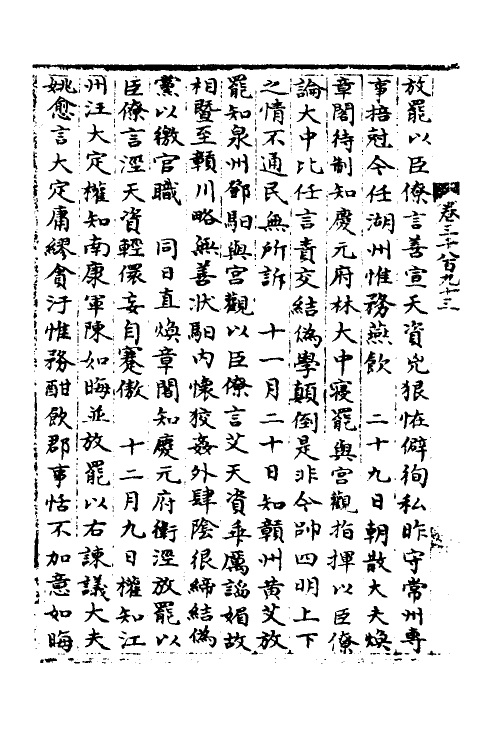 卷三千八百九十三
放罷以臣僚言善宣天資兇狠怪僻徇私昨守常州專
事掊尅今任湖州惟務燕飲　二十九日朝散大夫煥
章閣待制知慶元府林大中寝罷與宮觀指揮以臣僚
論大中比任言責交結偽學顛倒是非今帥四明上下
之情不通民無所訴　十一月二十日知贛州黄艾放
罷知泉州鄧馹與宮觀以臣僚言艾天資乖厲謟媚故
相暨至贛川略無善狀馹内懷狡姦外肆陰很締結偽
黨以繳官職　同日直煥章閣知慶元府衝涇放罷以
臣僚言涇天資輕儇妄自蹇傲　十二月九日權知江
州汪大定權知南康軍陳如晦並放罷以右諫議大夫
姚愈言大定庸繆貪汙惟務酣飲郡事恬不加意如晦